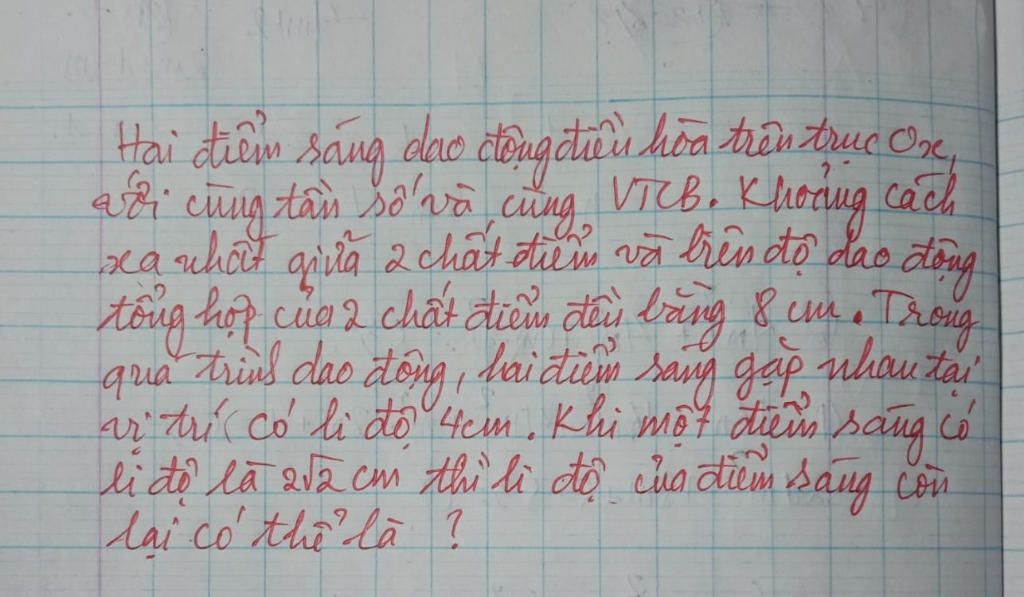 Hai điểm sáng dao động điều hòa trên trục Ox,
với cùng tần số và cùng VTCB. Khoảng cách
xa nhất giữa 2 chất điểm và biên độ dao động
tổng hợp của 2 chất điểm đều bằng 8 cm. Trong
quá trình dao động, hai điểm sáng gặp nhau tại
vị trí có li độ 4cm. Khi một điểm sáng có
li độ là 2√2 cm thì li độ của điểm sáng còn
lại có thể là ?